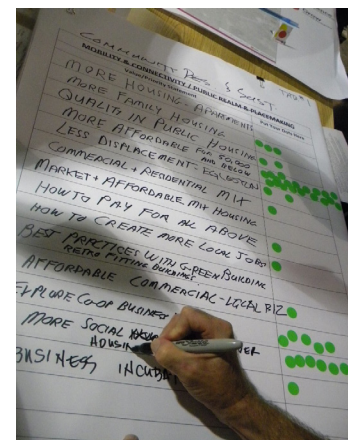 COMMUNITY DES & SUST.
MOBILITY & CONNECTIVITY / PUBLIC REALM & PLACEMAKING
Value/Priority Statement
Put Your Dots Here
MORE HOUSING - APARTMENTS
MORE FAMILY HOUSING
QUALITY IN PUBLIC HOUSING
MORE AFFORDABLE FOR 50,000 AND BELOW
LESS DISPLACEMENT - EGLESTON
COMMERCIAL + RESIDENTIAL MIX
MARKET + AFFORDABLE MIX HOUSING
HOW TO PAY FOR ALL ABOVE
HOW TO CREATE MORE LOCAL JOBS
BEST PRACTICES WITH GREEN BUILDING
RETRO FITTING BUILDINGS
AFFORDABLE COMMERCIAL - LOCAL BIZ
EXPLORE CO-OP BUSINESS
MORE SOCIAL
HOUSIN
BUSINESS INCUBA